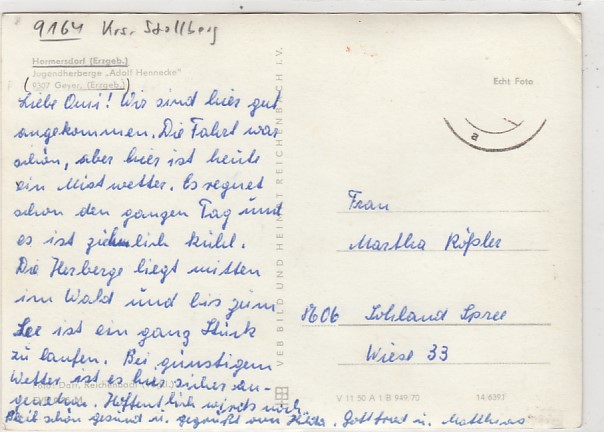 9164 Krs. Stollberg
Hermersdorf (Erzgeb.)
Jugendherberge „Adolf Hennecke"
(9307 Geyer, (Erzgeb.)
Liebe Omi! Wir sind hier gut
angekommen. Die Fahrt war
schön, aber hier ist heute
ein Mistwetter. Es regnet
schon den ganzen Tag und
es ist ziehmlich kühl.
Die Herberge liegt mitten
im Wald und bis zum
See ist ein ganz Stück
zu laufen. Bei günstigem
Wetter ist es hier sicher an-
genehm. Hoffentlich wird's noch
Bleib schön gesund u. gegrüßt von Gottfried u. Matthias
Foto: Darr, Reichenbach
VEB BILD UND HEIMAT REICHENBACH I. V.
Echt Foto
a
Frau
Martha Rößler
8606 Sohland Spree
Wiese 33
V 11 50 A 1 B 949/70 14/6391